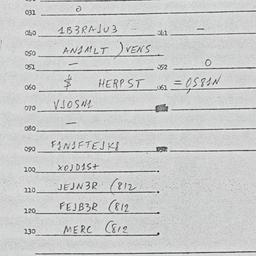 031 0
040 1B3RAJU3 041 —
050 ANJMLT )VENS
051 — 052 0
060 $ HERPST 061 =0,581N
070 VJOSN1
080 —
090 F1N1FTEJK8
100 XOJD1S+
110 JEJN3R (812
120 FEJB3R (812
130 MERC (812